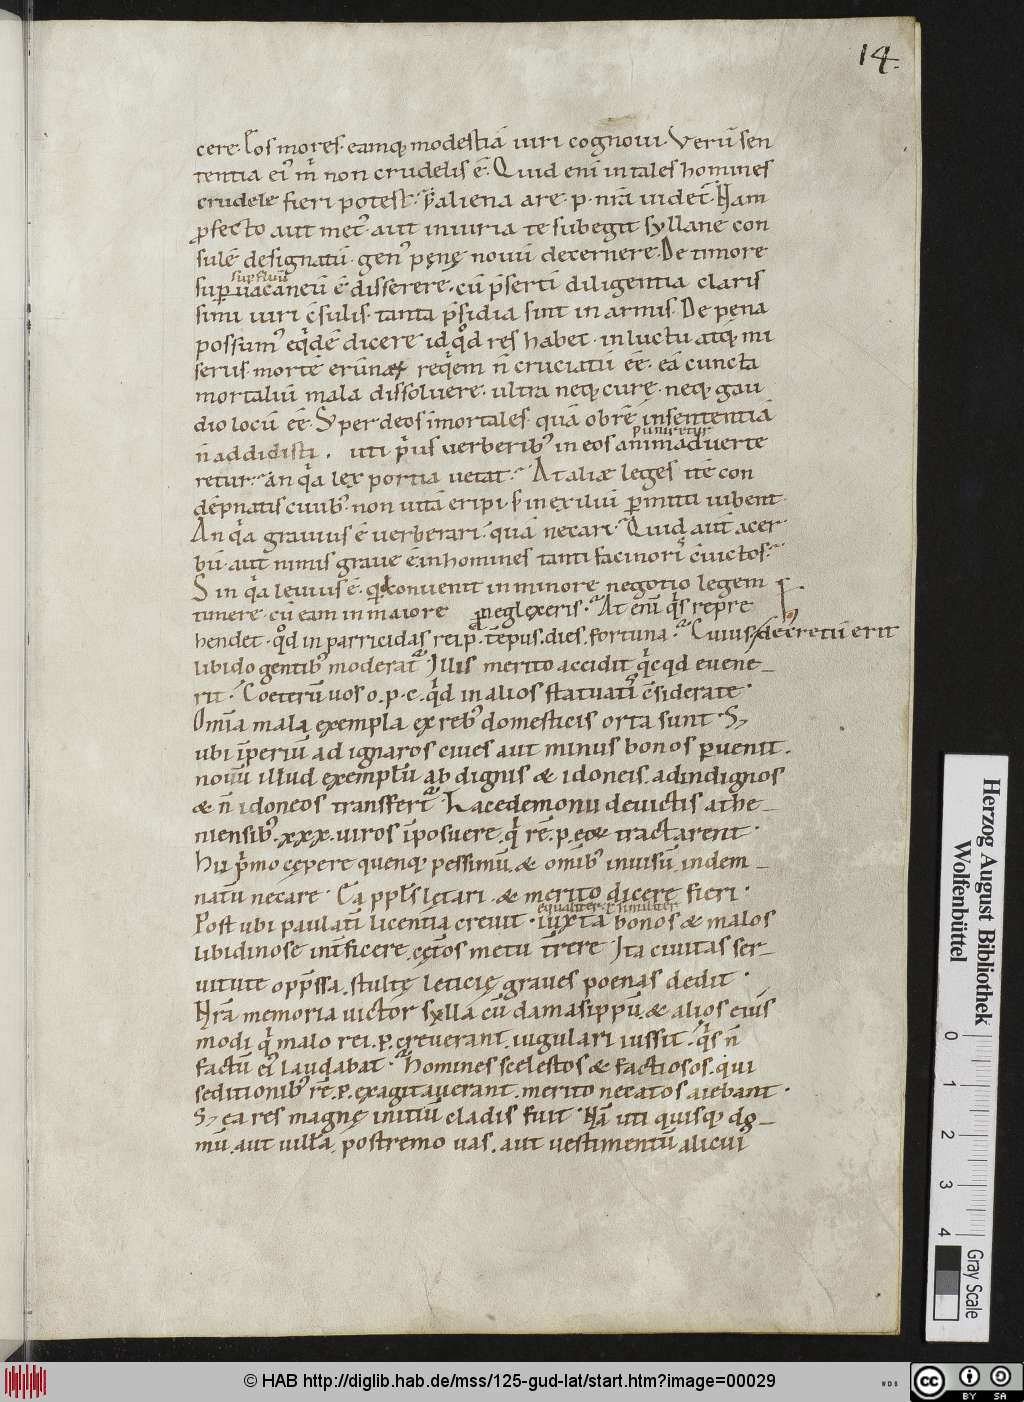 14.
cere. Eos mores. eamq; modestiā uiri cognoui. Verū sen
tentia ei' m̄ non crudelis ē. Quid eni in tales homines
crudele fieri potest. s; aliena a re. p. nr̄a uidet̄. Nam
p̄fecto aut met' aut iniuria te subegit syllane con
sulē designatū. gen' penę nouū decernere. De timore
supfluū
supuacaneū ē disserere. cū p̄sertī diligentia claris
simi uiri c̄sulis. tanta p̄sidia sint in armis. De pena
possum' eq̇dē dicere id qḋ res habet. in luctu atq; mi
seriis mortē erūnaꝝ req̇em n̄ cruciatū eē. eā cuncta
mortaliū mala dissoluere. ultra neq; curę. neq; gau
dio locū eē. S; per deos īmortales. quā ob rē in sententiā
puniretur
n̄ addidisti. uti p̄us uerberib' in eos animaduerte
retur. an q̇a lex portia uetat. At aliæ leges itē con
dēpnatis ciuib' non uitā eripi s; in exiliū p̄mitti iubent.
An q̇a grauius ē uerberari. quā necari. Quid aut̄ acer
bū. aut nimis graue ē in homines tanti facinoris c̄uictos.
Sin q̇a leuius ē. qui conuenit in minore negotio legem
timere. cū eam in maiore neglexeris. At eni q̇s repre
hendet. qḋ in parricidas rei p. tēpus. dies. fortuna. Cuius decretū erit
libido gentib' moderat̄. Illis merito accidit q̇cqd euene
rit. Coeterū uos o. p. c. qḋ in alios statuatis c̄siderate.
Omīa mala exempla ex reb' domesticis orta sunt. S;
ubi īperiū ad ignaros ciues aut minus bonos puenit.
nouū illud exemplū ab dignis & idoneis. ad indignos
& n̄ idoneos transfert̄. Lacedemonii deuictis athe
niensib' .xxx. uiros īposuere. q̇ rē. p. eoꝝ tractarent.
Hii p̄mo cępere quenq; pessimū. & omib' inuisū. indem
natū necare. Ea ppl̄s lętari. & merito dicere fieri.
equaliter. ł similiter
Post ubi paulatī licentia creuit. iuxta bonos & malos
libidinose int̄ficere. cęt̄os metu t̄rere. Ita ciuitas ser
uitute opp̄ssa. stultę leticię graues poenas dedit.
Nr̄a memoria uictor sylla cū damasippū. & alios ei'
modi q̇ malo rei. p. creuerant. iugulari iussit. q̇s n̄
factū ei' laudabat. Homines scelestos & factiosos. qui
seditionib' rē. p. exagitauerant. merito necatos aiebant.
S; ea res magnę initiū cladis fuit. Nā uti quisq; do
mū. aut uillā. postremo uas. aut uestimentū alicui
Herzog August Bibliothek
Wolfenbüttel
0 1 2 3 4
Gray Scale
© HAB http://diglib.hab.de/mss/125-gud-lat/start.htm?image=00029
CC BY SA